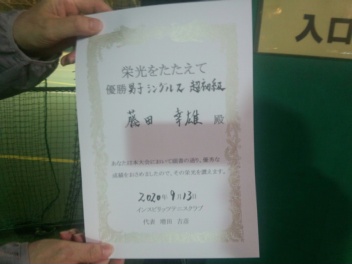 入口
栄光をたたえて
優勝 男子シングルス 超初級
藤田 幸雄 殿
あなたは本大会において頭書の通り、優秀な
成績をおさめましたので、その栄光を讃えます。
2020年9月13日
テニスクラブ
代表